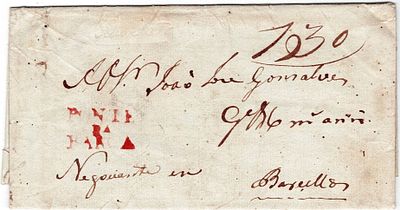 130
João Jose Gonsalves
PONTE
DA
BARCA
Negociante em
Barcellos